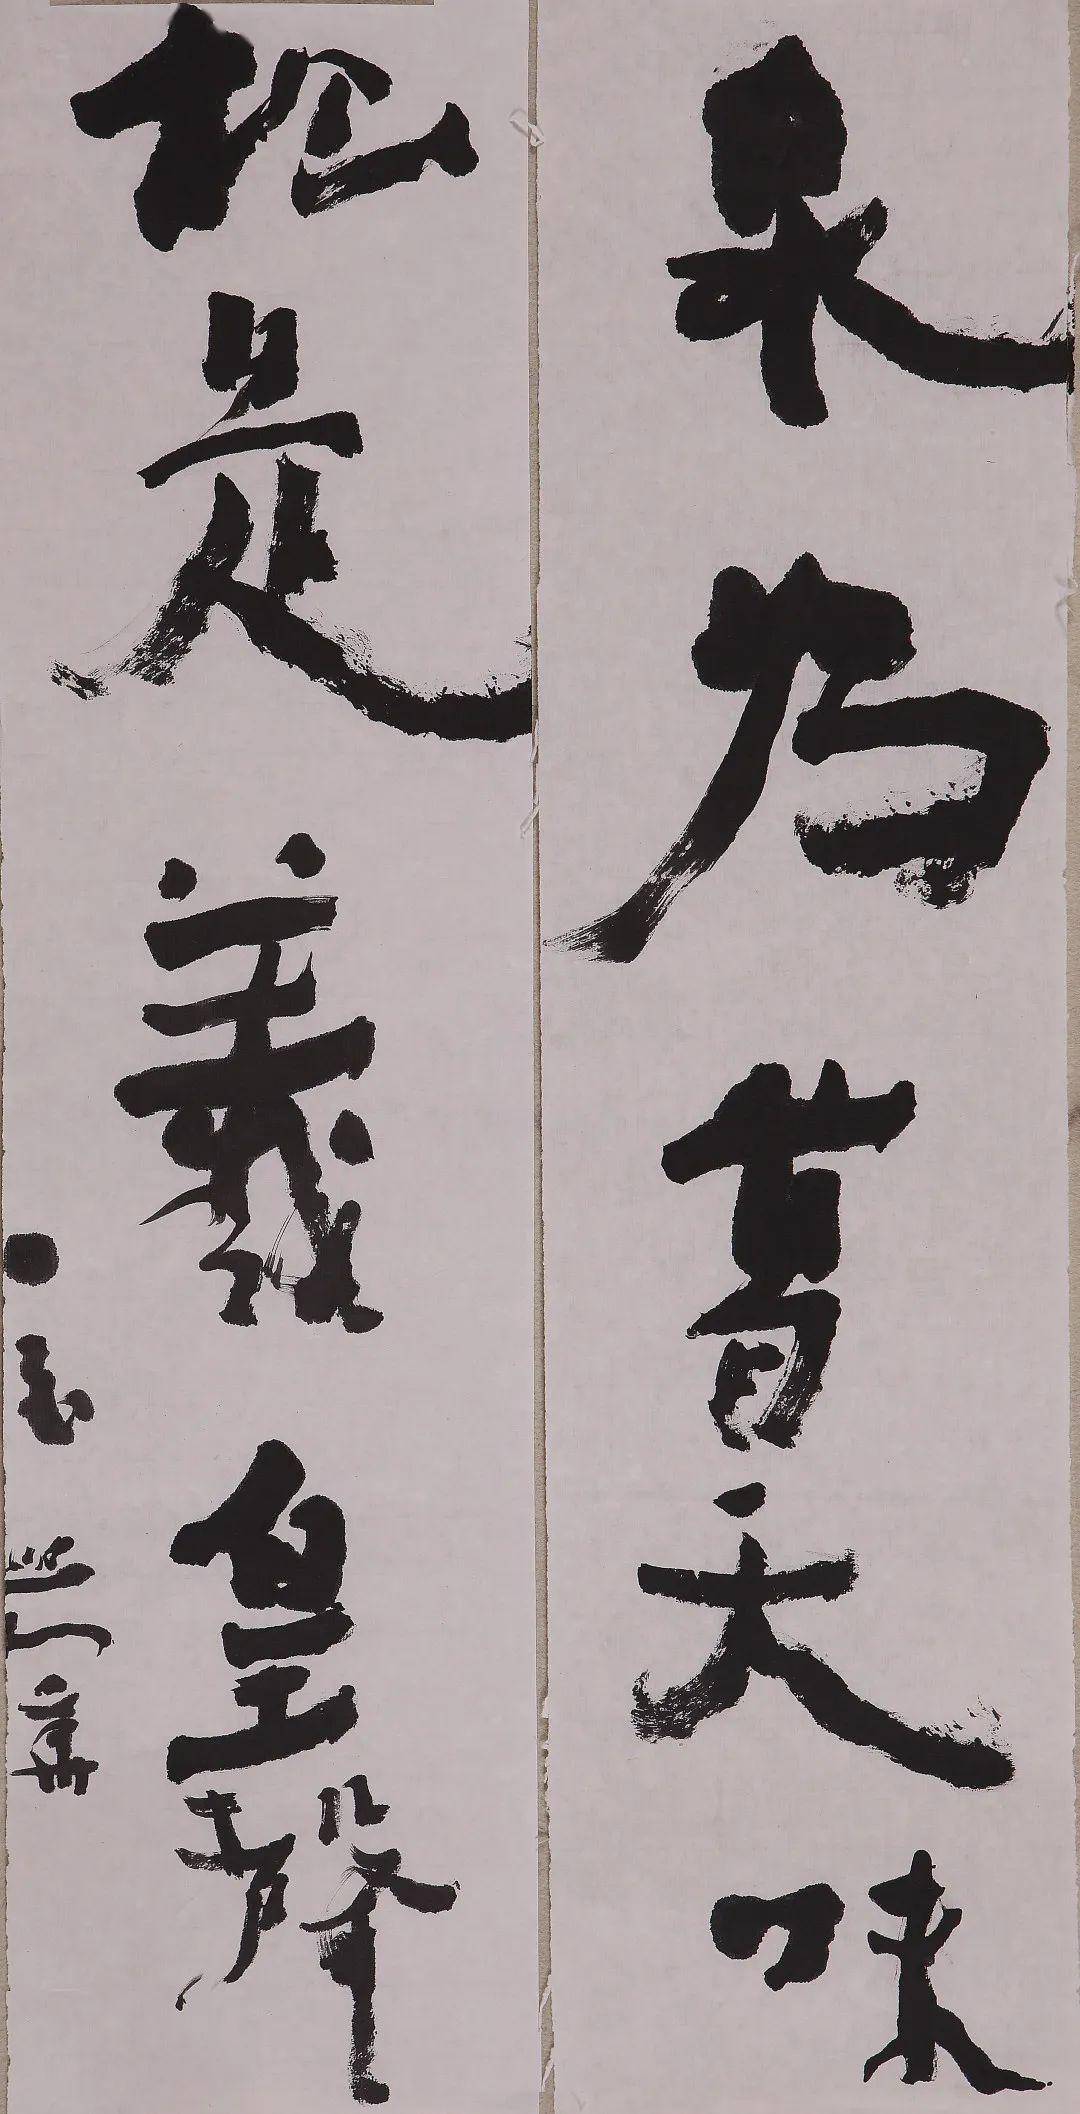 泉为葛天味
松是羲皇聲